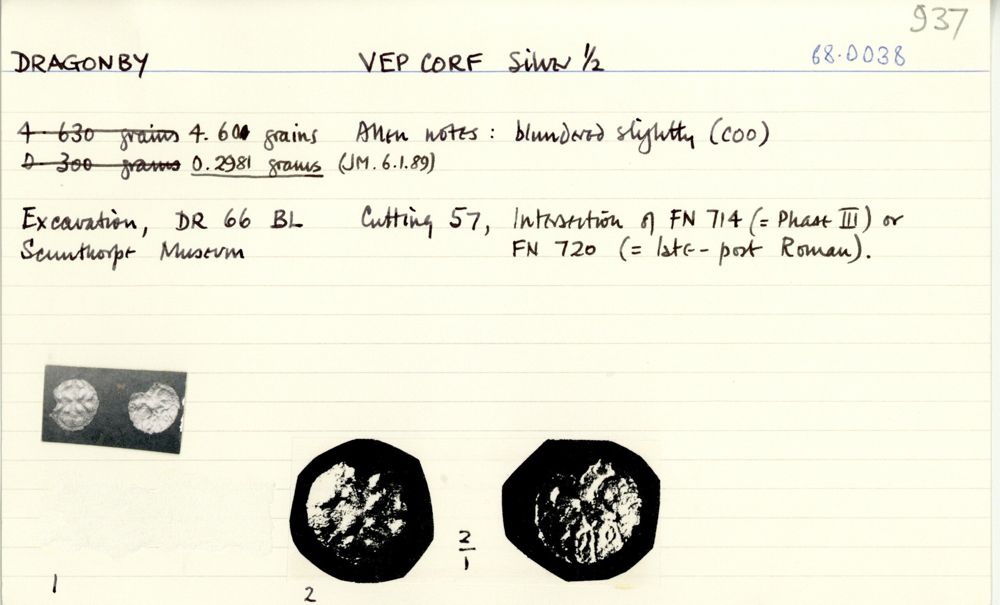 937
DRAGONBY VEP CORF Silver 1/2 68.0038
4. 630 grains 4.600 grains Allen notes : blundered slightly (COO)
0. 300 grams 0.2981 grams (JM. 6.1.89)
Excavation, DR 66 BL Cutting 57, Intersection of FN 714 (= Phase III) or
Scunthorpe Museum FN 720 (= late-post Roman).
2/1
1 2